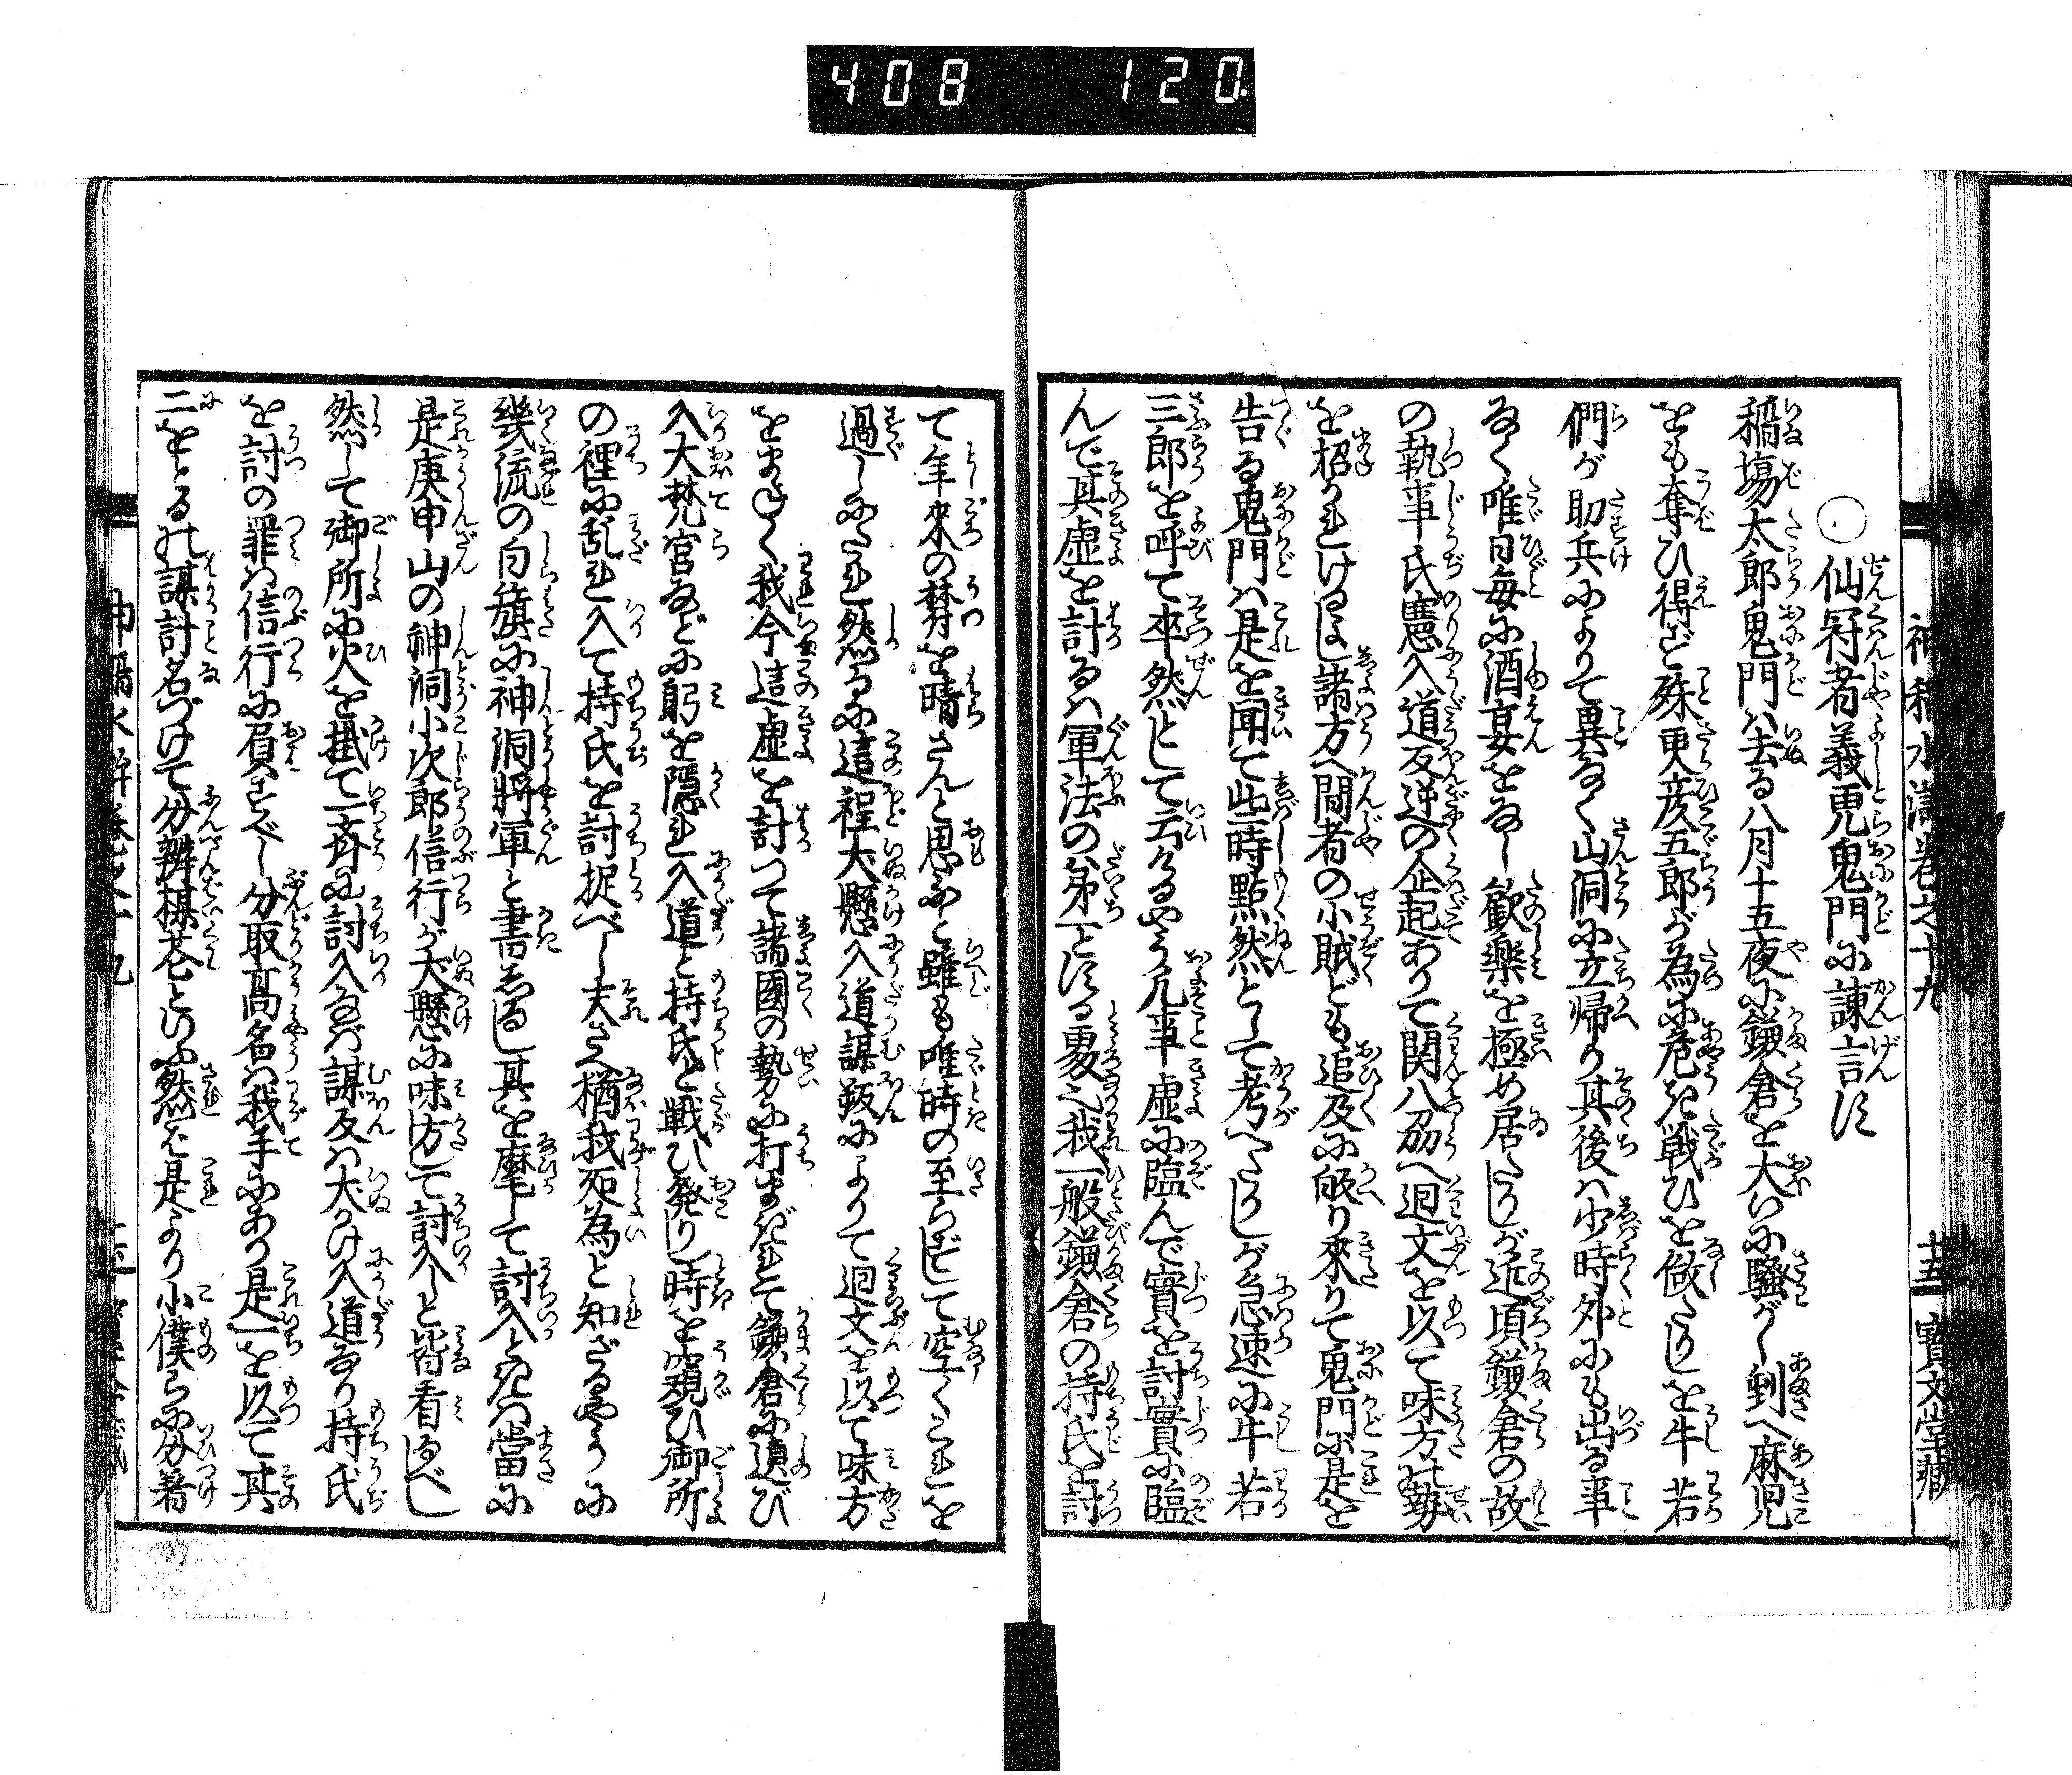 408 120
○仙冠者義虎鬼門に諌言す
稲塲太郎鬼門ハ去る八月十五夜に鎌倉を大いに騒がし剰へ麻児
をも奪ひ得ど殊更彦五郎が為に危き戦ひを做たりしを牛若
們が助兵によりて異なく山洞に立帰り其後ハ少時外にも出る事
なく唯日毎に酒宴をなし歓樂を極め居たりしが近頃鎌倉の故
の執事氏憲入道反逆の企起ありて関八刕へ迴文を以て味方の勢
を招かれけるよし諸方へ間者の小賊ども追及に皈り來りて鬼門に是を
告る鬼門ハ是を聞て些時黙然として考へたりしが急速に牛若
三郎を呼て卒然として云けるやう凡事虚に臨んで實を討實に臨
んで其虚を計るハ軍法の第一とする処之我一般鎌倉の持氏を討
て年來の欝を晴さんと思ふと雖も唯時の至らずして空くこれを
過しにたれ然るに這程犬懸入道謀叛によりて迴文を以て味方
をまねく我今這虚を計つて諸國の勢に打まぎれて鎌倉に遉び
入大梵宮などに躬を隱れ入道と持氏と戦ひ発りし時を窺ひ御所
の裡に乱れ入て持氏を討捉べし夫さへ猶我所為と知ざるやうに
幾流の白籏に神洞將軍と書しるし其を麾して討入ときハ當に
是庚申山の神洞小次郎信行が犬懸に味方して討入しと皆看るべし
然して御所に火を掛て一斉に討入なバ謀反ハ犬かけ入道なり持氏
を討の罪ハ信行に負すべし分取高名ハ我手にあり是一を以て其
二をとるの謀計名づけて分辨棋苍といふ然ば是より小僕らに分著
神稲水滸巻之十九
十五
寳文堂藏